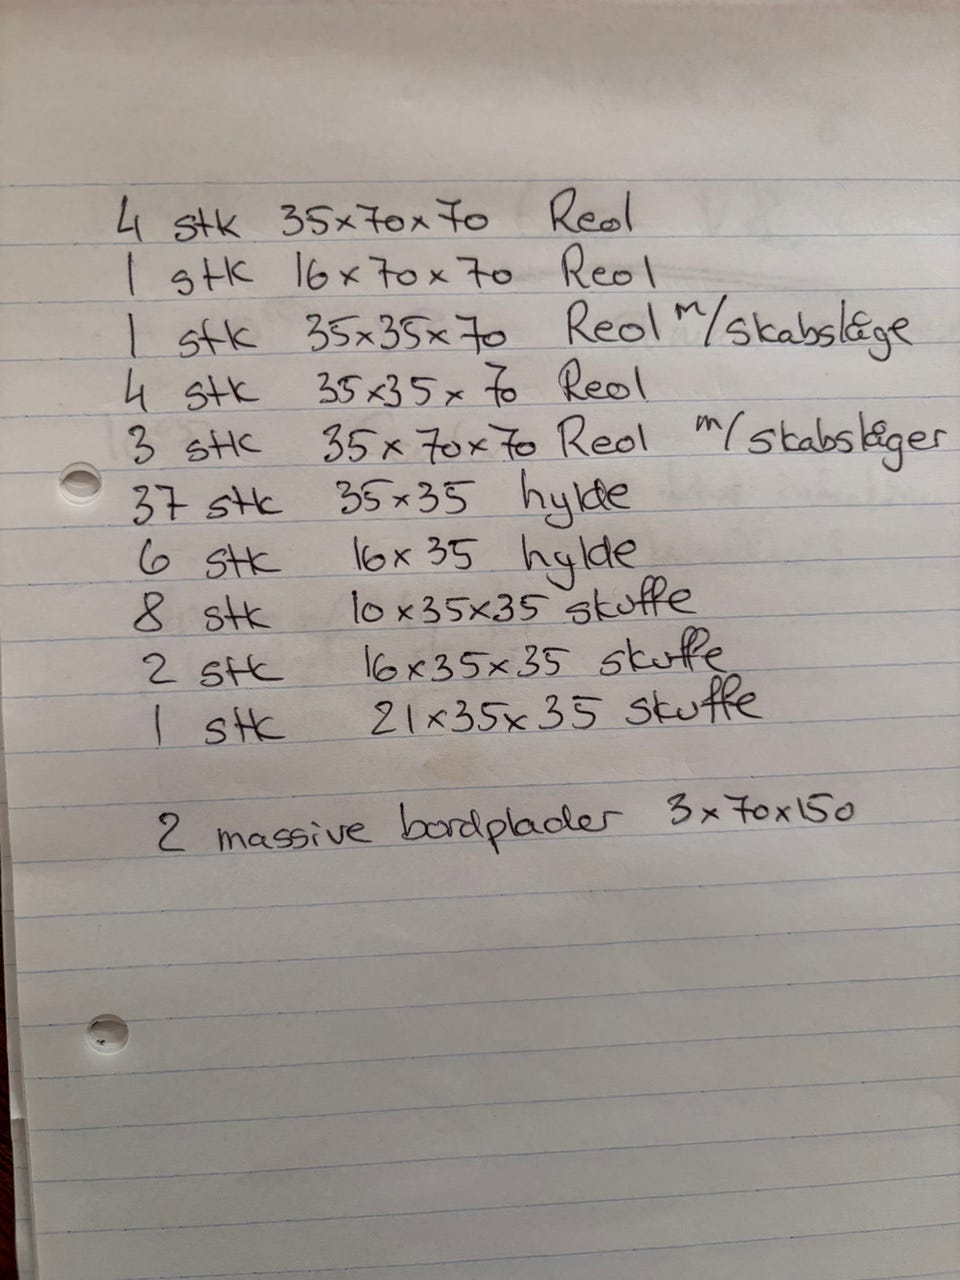 4 stk 35x70x70 Reol
1 stk 16x70x70 Reol
1 stk 35x35x70 Reol m/skabslåge
4 stk 35x35x70 Reol
3 stk 35x70x70 Reol m/skabslåger
37 stk 35x35 hylde
6 stk 16x35 hylde
8 stk 10x35x35 skuffe
2 stk 16x35x35 skuffe
1 stk 21x35x35 skuffe
2 massive bordplader 3x70x150